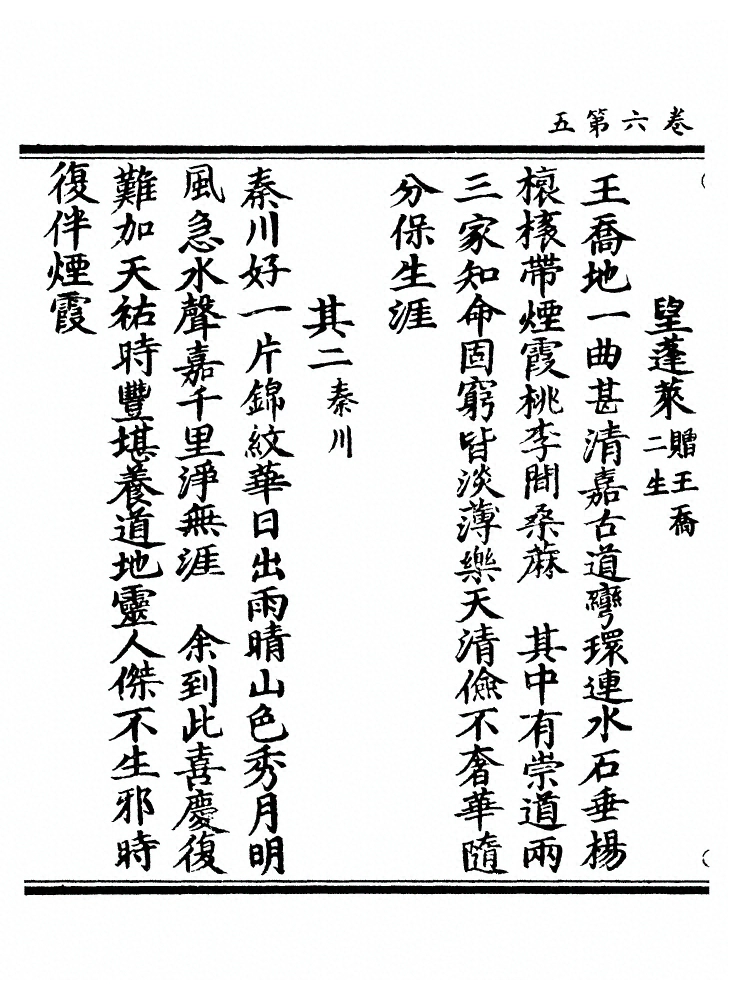 卷六第五
望蓬萊贈王喬二生
王喬地一曲甚清嘉古道彎環連水石垂楊
榱榱帶煙霞桃李間桑蔴　其中有崇道兩
三家知命固窮皆淡薄樂天清儉不奢華隨
分保生涯
其二秦川
秦川好一片錦紋華日出雨晴山色秀月明
風急水聲嘉千里淨無涯　余到此喜慶復
難加天祐時豐堪養道地靈人傑不生邪時
復伴煙霞